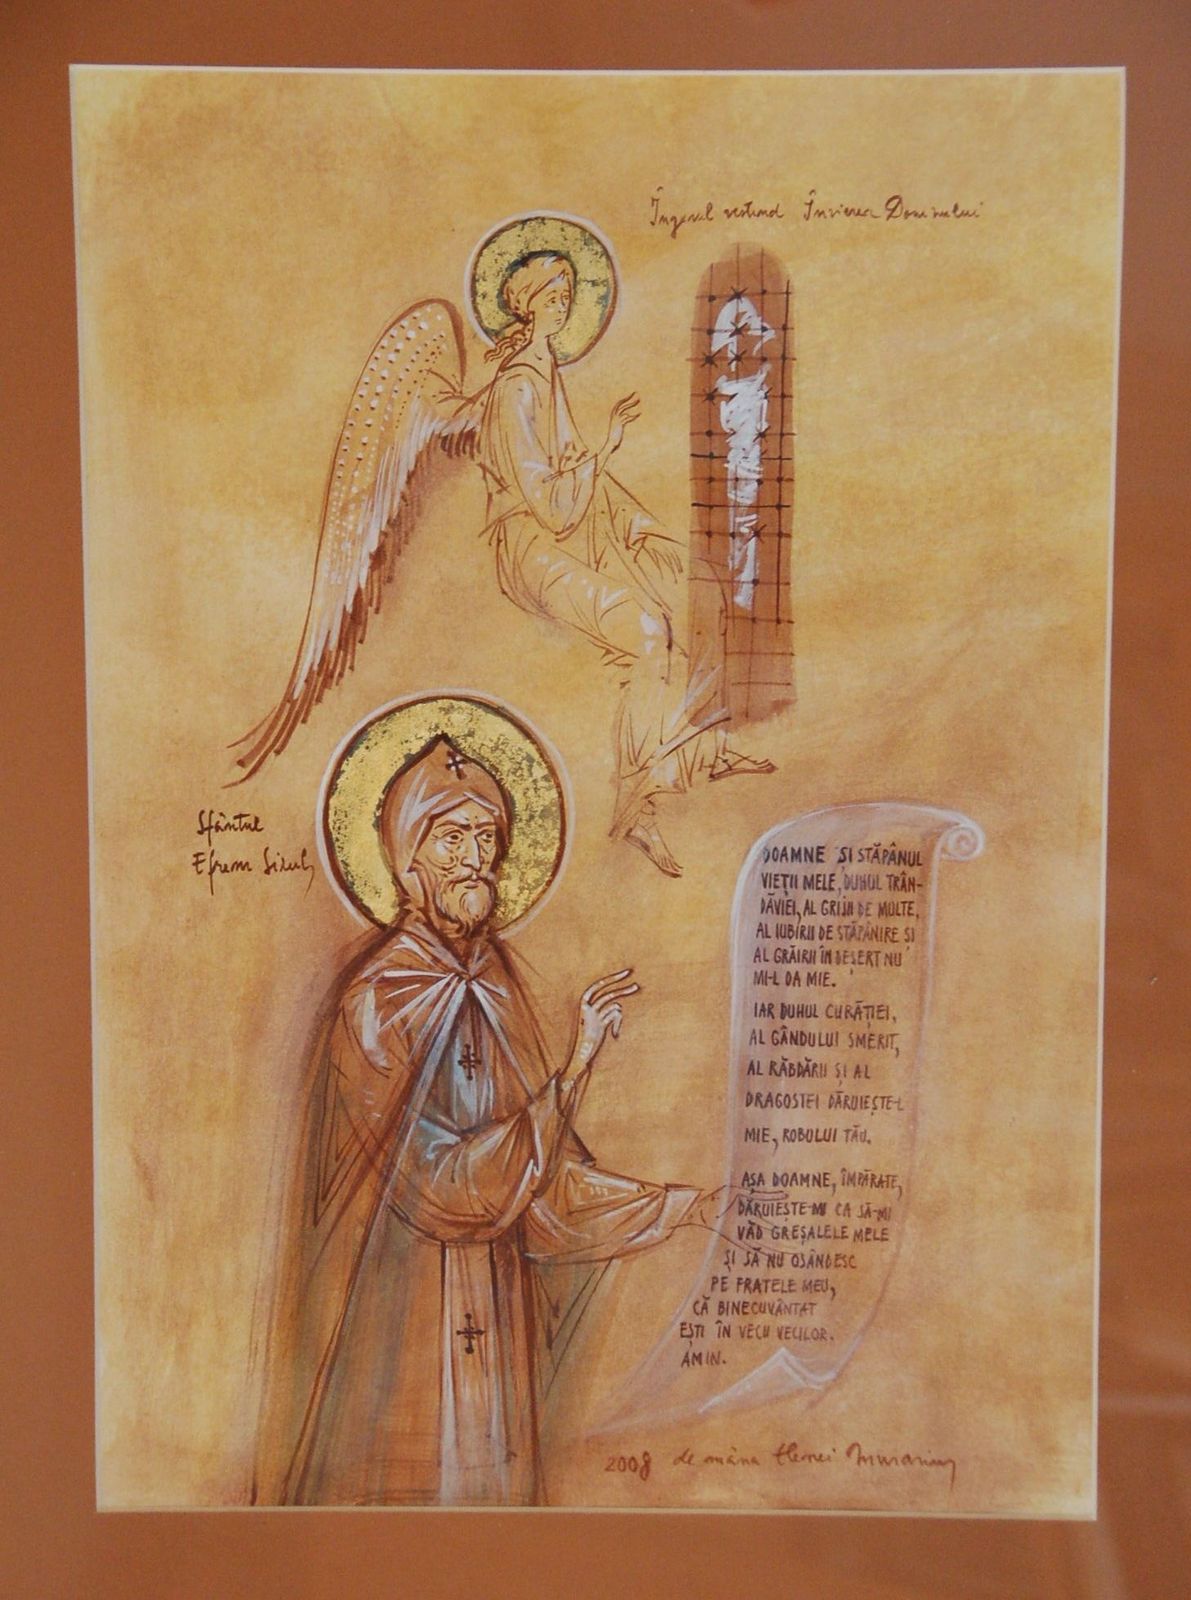 Îngerul vestind Învierea Domnului
Sfântul
Efrem Sirul
DOAMNE ȘI STĂPÂNUL
VIEȚII MELE, DUHUL TRÂN-
DĂVIEI, AL GRIJII DE MULTE,
AL IUBIRII DE STĂPÂNIRE ȘI
AL GRĂIRII ÎN DEȘERT NU
MI-L DA MIE.
IAR DUHUL CURĂȚIEI,
AL GÂNDULUI SMERIT,
AL RĂBDĂRII ȘI AL
DRAGOSTEI DĂRUIEȘTE-L
MIE, ROBULUI TĂU.
AȘA DOAMNE, ÎMPĂRATE,
DĂRUIEȘTE-MI CA SĂ-MI
VĂD GREȘALELE MELE
ȘI SĂ NU OSÂNDESC
PE FRATELE MEU,
CĂ BINECUVÂNTAT
EȘTI ÎN VECII VECILOR.
AMIN.
2008 de mâna Elenei